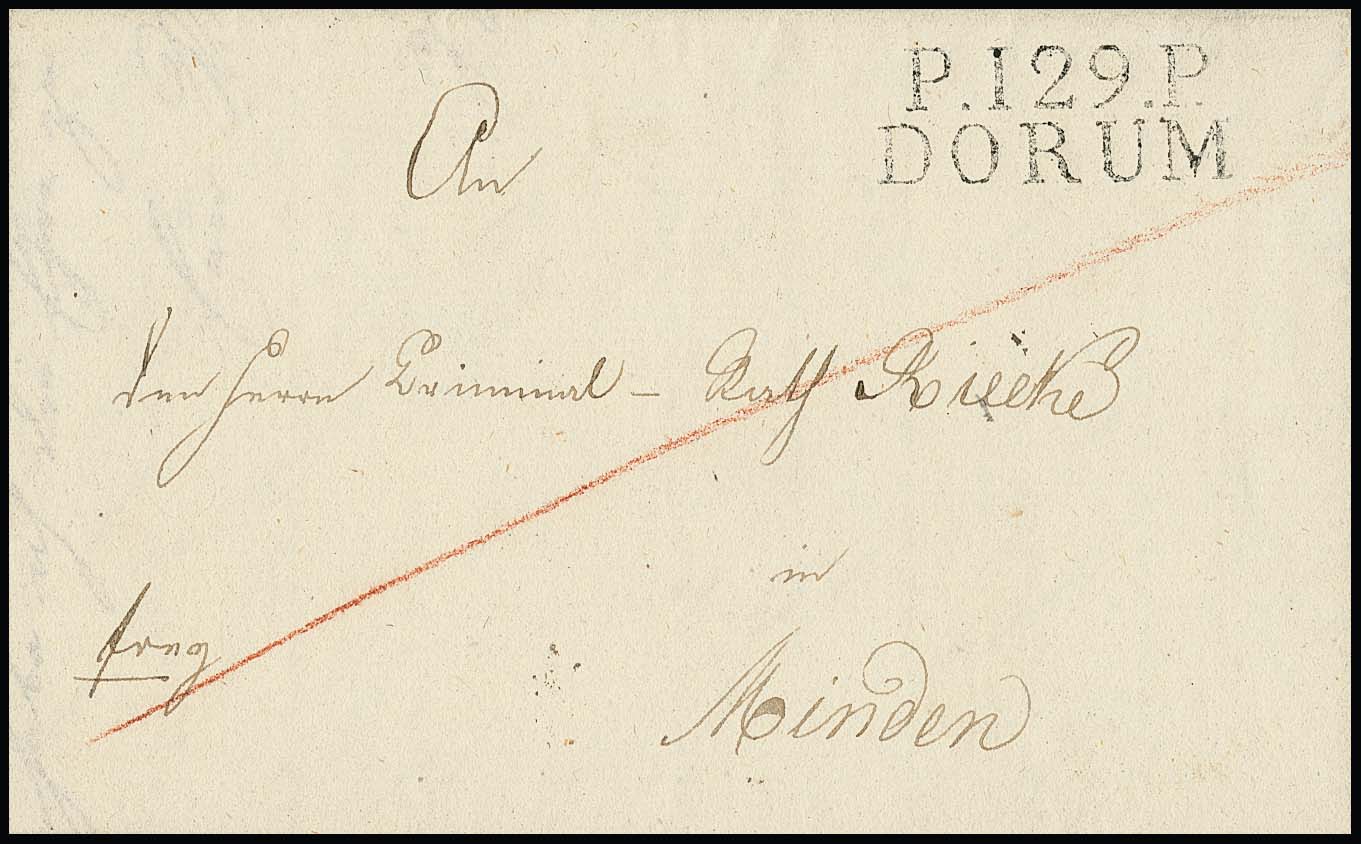 P.129.P.
DORUM
An
den Herrn Criminal - Rath Riecke
in
frey
Minden